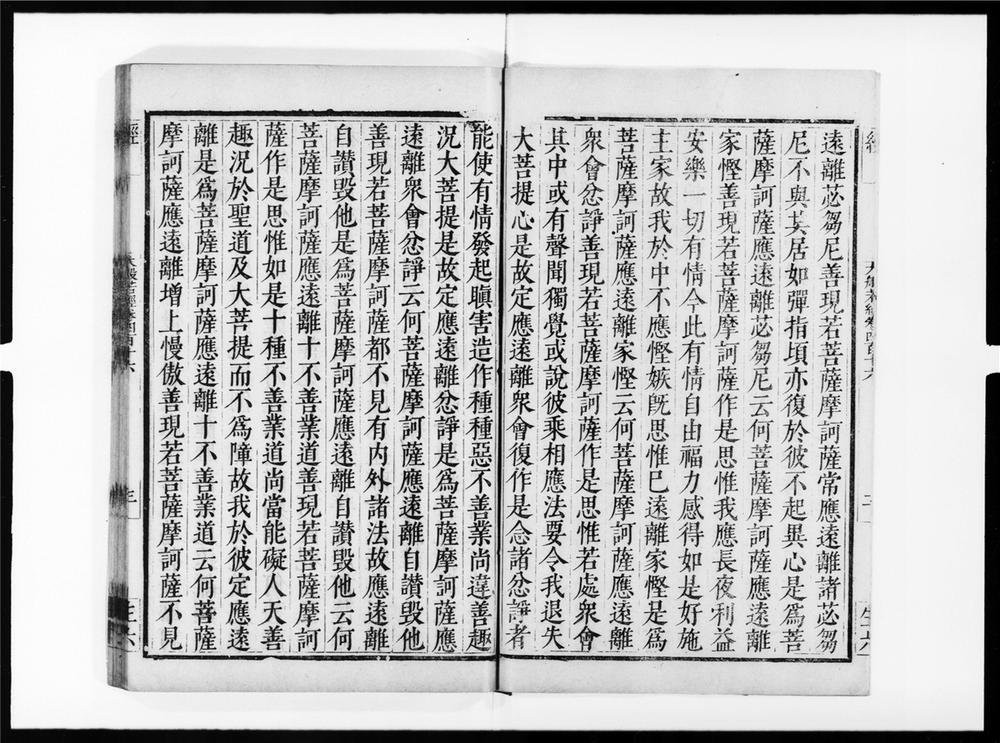 遠離苾芻尼善現若菩薩摩訶薩常應遠離諸苾芻
尼不與其居如彈指頃亦復於彼不起異心是爲菩
薩摩訶薩應遠離苾芻尼云何菩薩摩訶薩應遠離
家慳善現若菩薩摩訶薩作是思惟我應長夜利益
安樂一切有情今此有情自由福力感得如是好施
主家故我於中不應慳嫉旣思惟已遠離家慳是爲
菩薩摩訶薩應遠離家慳云何菩薩摩訶薩應遠離
衆會忿諍善現若菩薩摩訶薩作是思惟若處衆會
其中或有聲聞獨覺或說彼乘相應法要令我退失
大菩提心是故定應遠離衆會復作是念諸忿諍者
能使有情發起瞋害造作種種惡不善業尚違善趣
況大菩提是故定應遠離忿諍是爲菩薩摩訶薩應
遠離衆會忿諍云何菩薩摩訶薩應遠離自讃毀他
善現若菩薩摩訶薩都不見有内外諸法故應遠離
自讃毀他是爲菩薩摩訶薩應遠離自讃毀他云何
菩薩摩訶薩應遠離十不善業道善現若菩薩摩訶
薩作是思惟如是十種不善業道尚當能礙人天善
趣況於聖道及大菩提而不爲障故我於彼定應遠
離是爲菩薩摩訶薩應遠離十不善業道云何菩薩
摩訶薩應遠離增上慢傲善現若菩薩摩訶薩不見
經
大般若經卷四百十六